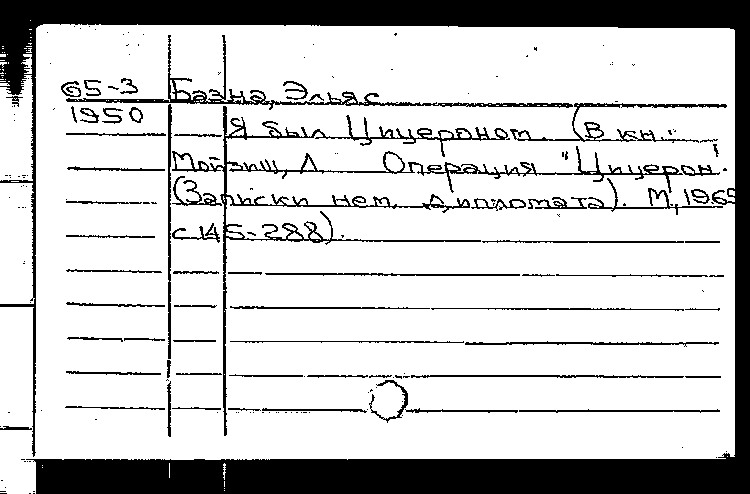 65-3 Базна, Эльяс
1950 Я был Цицероном. (В кн.:
Мойзиш, Л. Операция "Цицерон".
(Записки нем. дипломата). М, 1965
с 145-288).